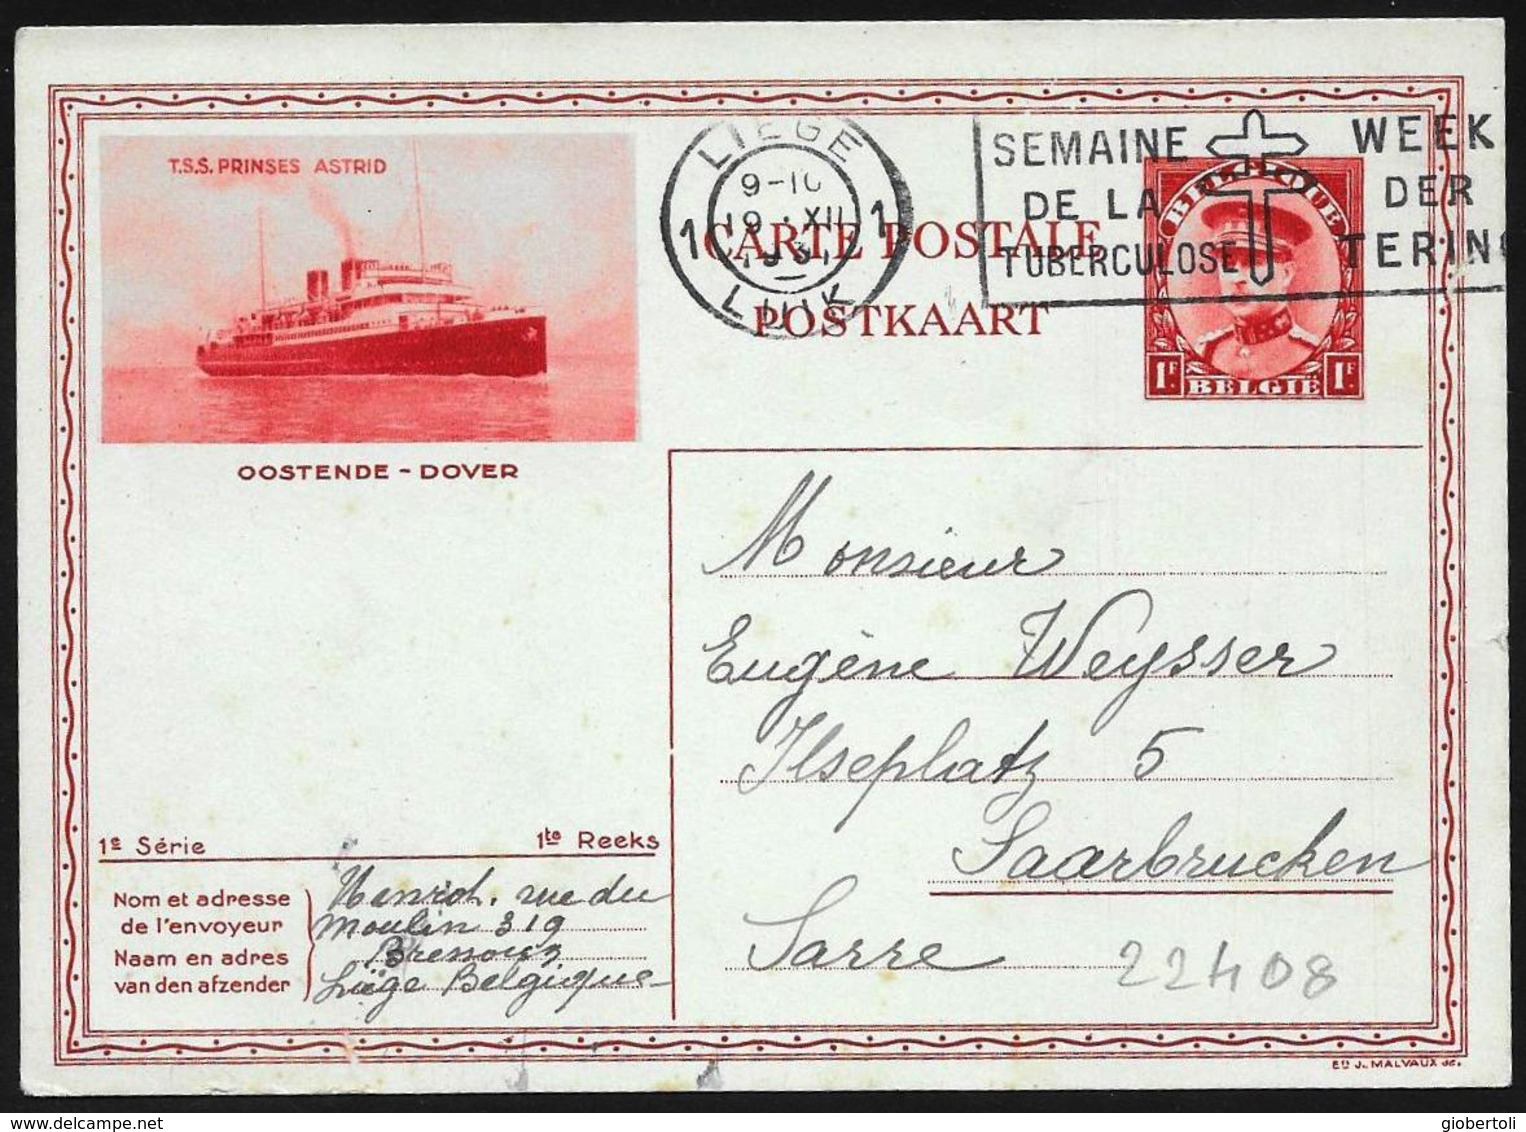 T.S.S. PRINSES ASTRID
OOSTENDE - DOVER
LIEGE
9-10
19 XII
1 1
LUIK
SEMAINE
DE LA
TUBERCULOSE
WEEK
DER
TERING
CARTE POSTALE
POSTKAART
BELGIQUE
1F 1F
BELGIË
Monsieur
Eugène Weysser
Ilseplatz 5
Saarbrucken
Sarre
22408
1e Série
1te Reeks
Nom et adresse
de l'envoyeur
Naam en adres
van den afzender
Henrot, rue du
Moulin 319
Bressoux
Liège Belgique
Ed J. MALVAUX
giobertoli